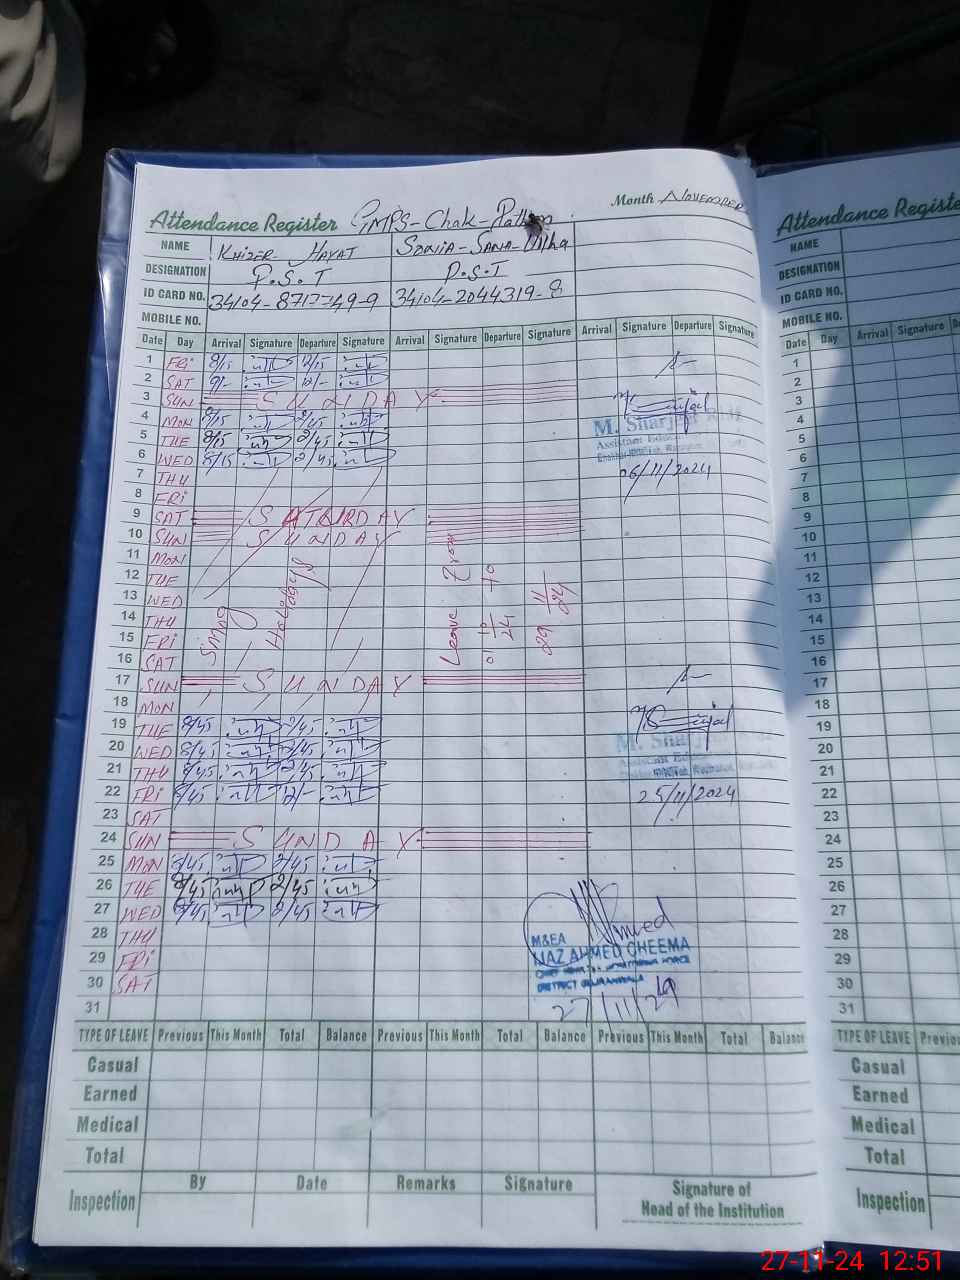 Attendance Register GMPS-Chak-Pathan Month November
NAME Khizer-Hayat Sonia-Sana-
DESIGNATION P.S.T P.S.T
ID CARD NO. 34104-8717749-9 34104-2044319-8
MOBILE NO.
Date Day Arrival Signature Departure Signature Arrival Signature Departure Signature Arrival Signature Departure Signature
1 FRi 8/15 12/15
2 SAT 9/- 12/-
3 SUN SUNDAY
4 MON 8/15 2/45
M. Sharjeel
5 TUE 8/15 2/45
Assistant
6 WED 8/15 2/45
26/11/2024
7 THU
8 FRi
9 SAT SATURDAY
10 SUN SUNDAY
11 MON
12 TUE
13 WED
14 THU
15 FRi
16 SAT
Smog Holidays
Leave From 01/10/24 to 29/11/24
17 SUN SUNDAY
18 MON
19 TUE 8/45 2/45
20 WED 8/45 2/45
Assistant
21 THU 8/45 2/45
22 FRi 8/45 12/-
25/11/2024
23 SAT
24 SUN SUNDAY
25 MON 8/45 2/45
26 TUE 8/45 2/45
27 WED 8/45 2/45
28 THU
29 FRi
30 SAT
31
M&EA
NAZ AHMED CHEEMA
DISTRICT GUJRANWALA
27/11/24
TYPE OF LEAVE Previous This Month Total Balance Previous This Month Total Balance Previous This Month Total Balance
Casual
Earned
Medical
Total
Inspection By Date Remarks Signature
Signature of
Head of the Institution
Attendance Registe
NAME
DESIGNATION
ID CARD NO.
MOBILE NO.
Date Day Arrival Signature
1
2
3
4
5
6
7
8
9
10
11
12
13
14
15
16
17
18
19
20
21
22
23
24
25
26
27
28
29
30
31
TYPE OF LEAVE Previo
Casual
Earned
Medical
Total
Inspection
27-11-24 12:51